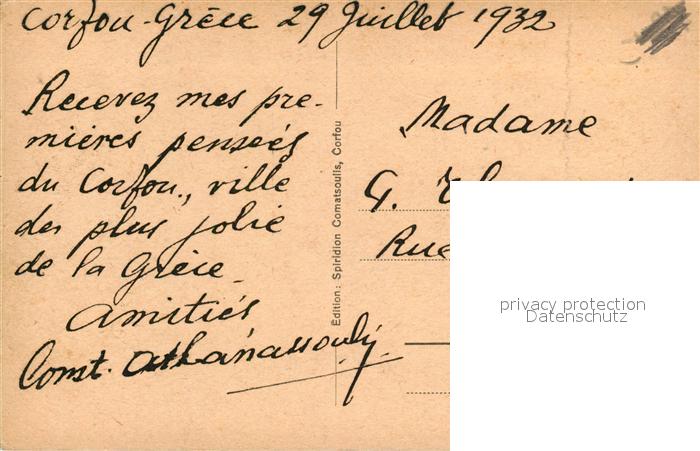 Corfou-Grèce 29 Juillet 1932
Recevez mes pre-
mières pensées
du Corfou, ville
des plus jolie
de la Grèce
Amitiés
Const. Athanassouly
Édition: Spiridion Comatsoulis, Corfou
Madame
G.
Rue
privacy protection
Datenschutz